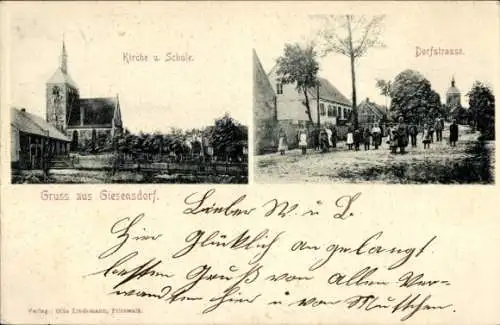 Kirche u. Schule.
Dorfstrasse.
Gruss aus Giesensdorf.
Lieber W. u. L.
Hier Glücklich angelangt.
besten Gruß von Allen Ver-
wandten hier u von Mutschen
Verlag: Otto Lindemann, Pritzwalk.